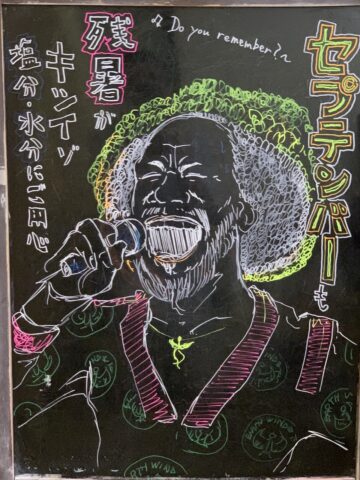 ♪ Do you remember?~
セプテンバーも
残暑が
キツイゾ
塩分・水分にご用心
WIND